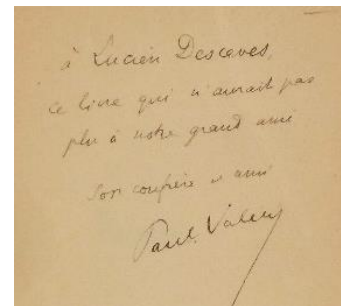 à Lucien Descaves,
ce livre qui n'aurait pas
plu à notre grand ami
Son confrère et ami
Paul Valéry